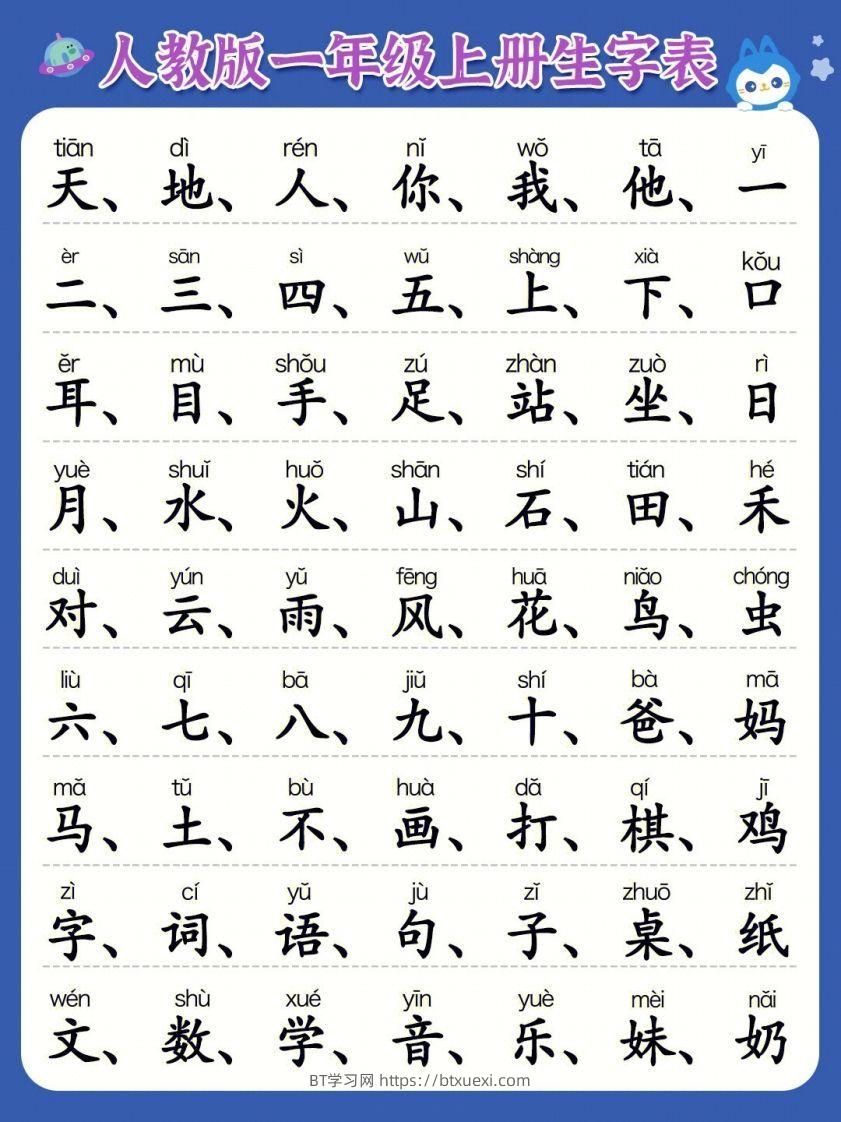 人教版一年级上册生字表
tiān dì rén nǐ wǒ tā yī
天、地、人、你、我、他、一
èr sān sì wǔ shàng xià kǒu
二、三、四、五、上、下、口
ěr mù shǒu zú zhàn zuò rì
耳、目、手、足、站、坐、日
yuè shuǐ huǒ shān shí tián hé
月、水、火、山、石、田、禾
duì yún yǔ fēng huā niǎo chóng
对、云、雨、风、花、鸟、虫
liù qī bā jiǔ shí bà mā
六、七、八、九、十、爸、妈
mǎ tǔ bù huà dǎ qí jī
马、土、不、画、打、棋、鸡
zì cí yǔ jù zǐ zhuō zhǐ
字、词、语、句、子、桌、纸
wén shù xué yīn yuè mèi nǎi
文、数、学、音、乐、妹、奶
BT学习网 https://btxuexi.com